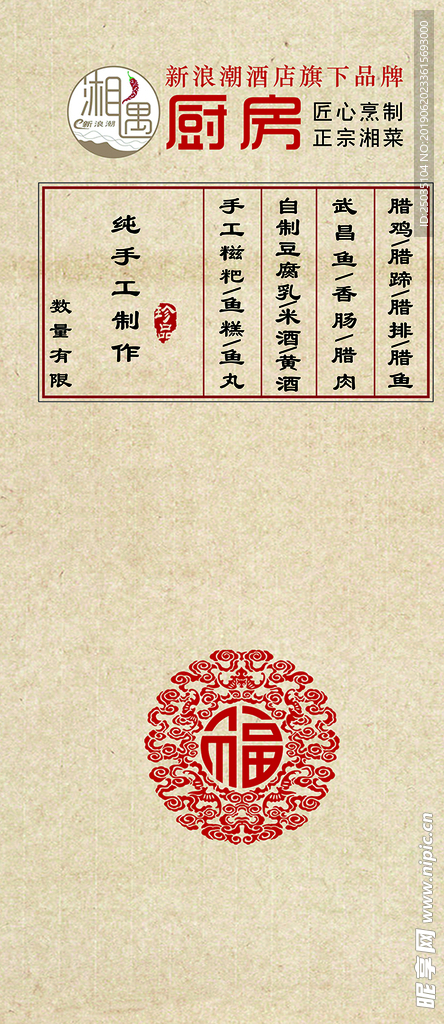 湘遇
e新浪潮
新浪潮酒店旗下品牌
厨房
匠心烹制
正宗湘菜
腊鸡/腊蹄/腊排/腊鱼
武昌鱼/香肠/腊肉
自制豆腐乳/米酒/黄酒
手工糍粑/鱼糕/鱼丸
纯手工制作
珍品
数量有限
福
昵享网 www.nipic.cn
ID:25035104 NO:20190620233615693000